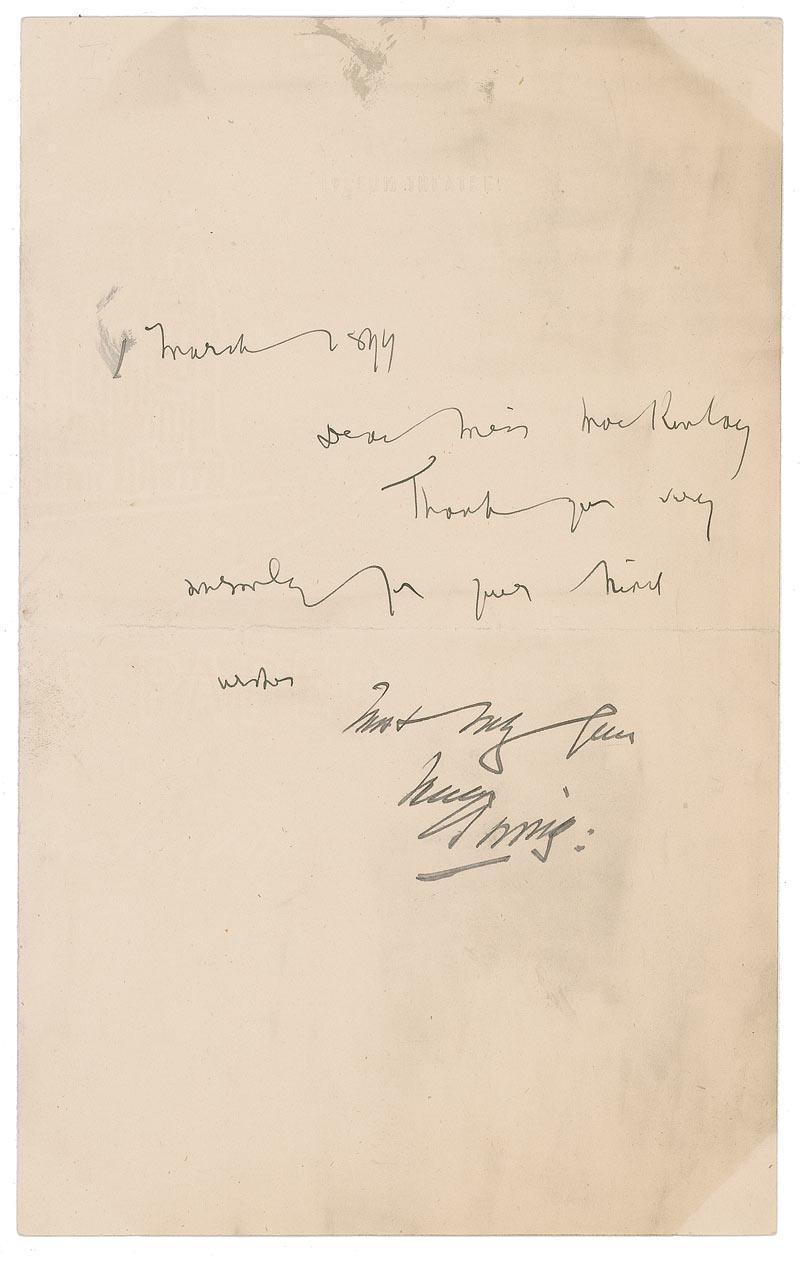 LYCEUM THEATRE.
1 March 1899
Dear Miss MacKinlay
Thank you very
sincerely for your kind
wishes
Most
Henry
Irving: